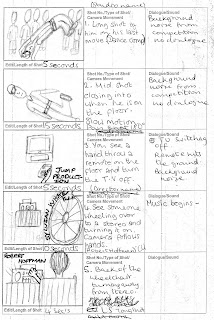 Shot No./Type of Shot/
Camera Movement
1. Long shot of
him in his last
move (dance comp)
Dialogue/Sound
Background
noise from
competition
no dialogue
Edit/Length of Shot 5 seconds
Shot No./Type of Shot/
Camera Movement
2. Mid shot
closing into
when he is on
the floor.
Slow Motion
Dialogue/Sound
Background
noise from
competition
no dialogue
Edit/Length of Shot 5 seconds
JUMP
PRODUCTION
Shot No./Type of Shot/
Camera Movement
3. You see a
hand throw a
remote on the
floor and turn
the T.V off.
Dialogue/Sound
TV Switches
off
Remote hits
the ground
Background
noise
Edit/Length of Shot 5 seconds
Shot No./Type of Shot/
Camera Movement
4. See someone
wheeling over
to a stereo and
turning it on
Camera follows
hands.
Dialogue/Sound
Music begins -
Edit/Length of Shot
ROBERT
HOFFMAN
Shot No./Type of Shot/
Camera Movement
5. Back of the
wheelchair
turning away
Dialogue/Sound
Edit/Length of Shot 4 secs